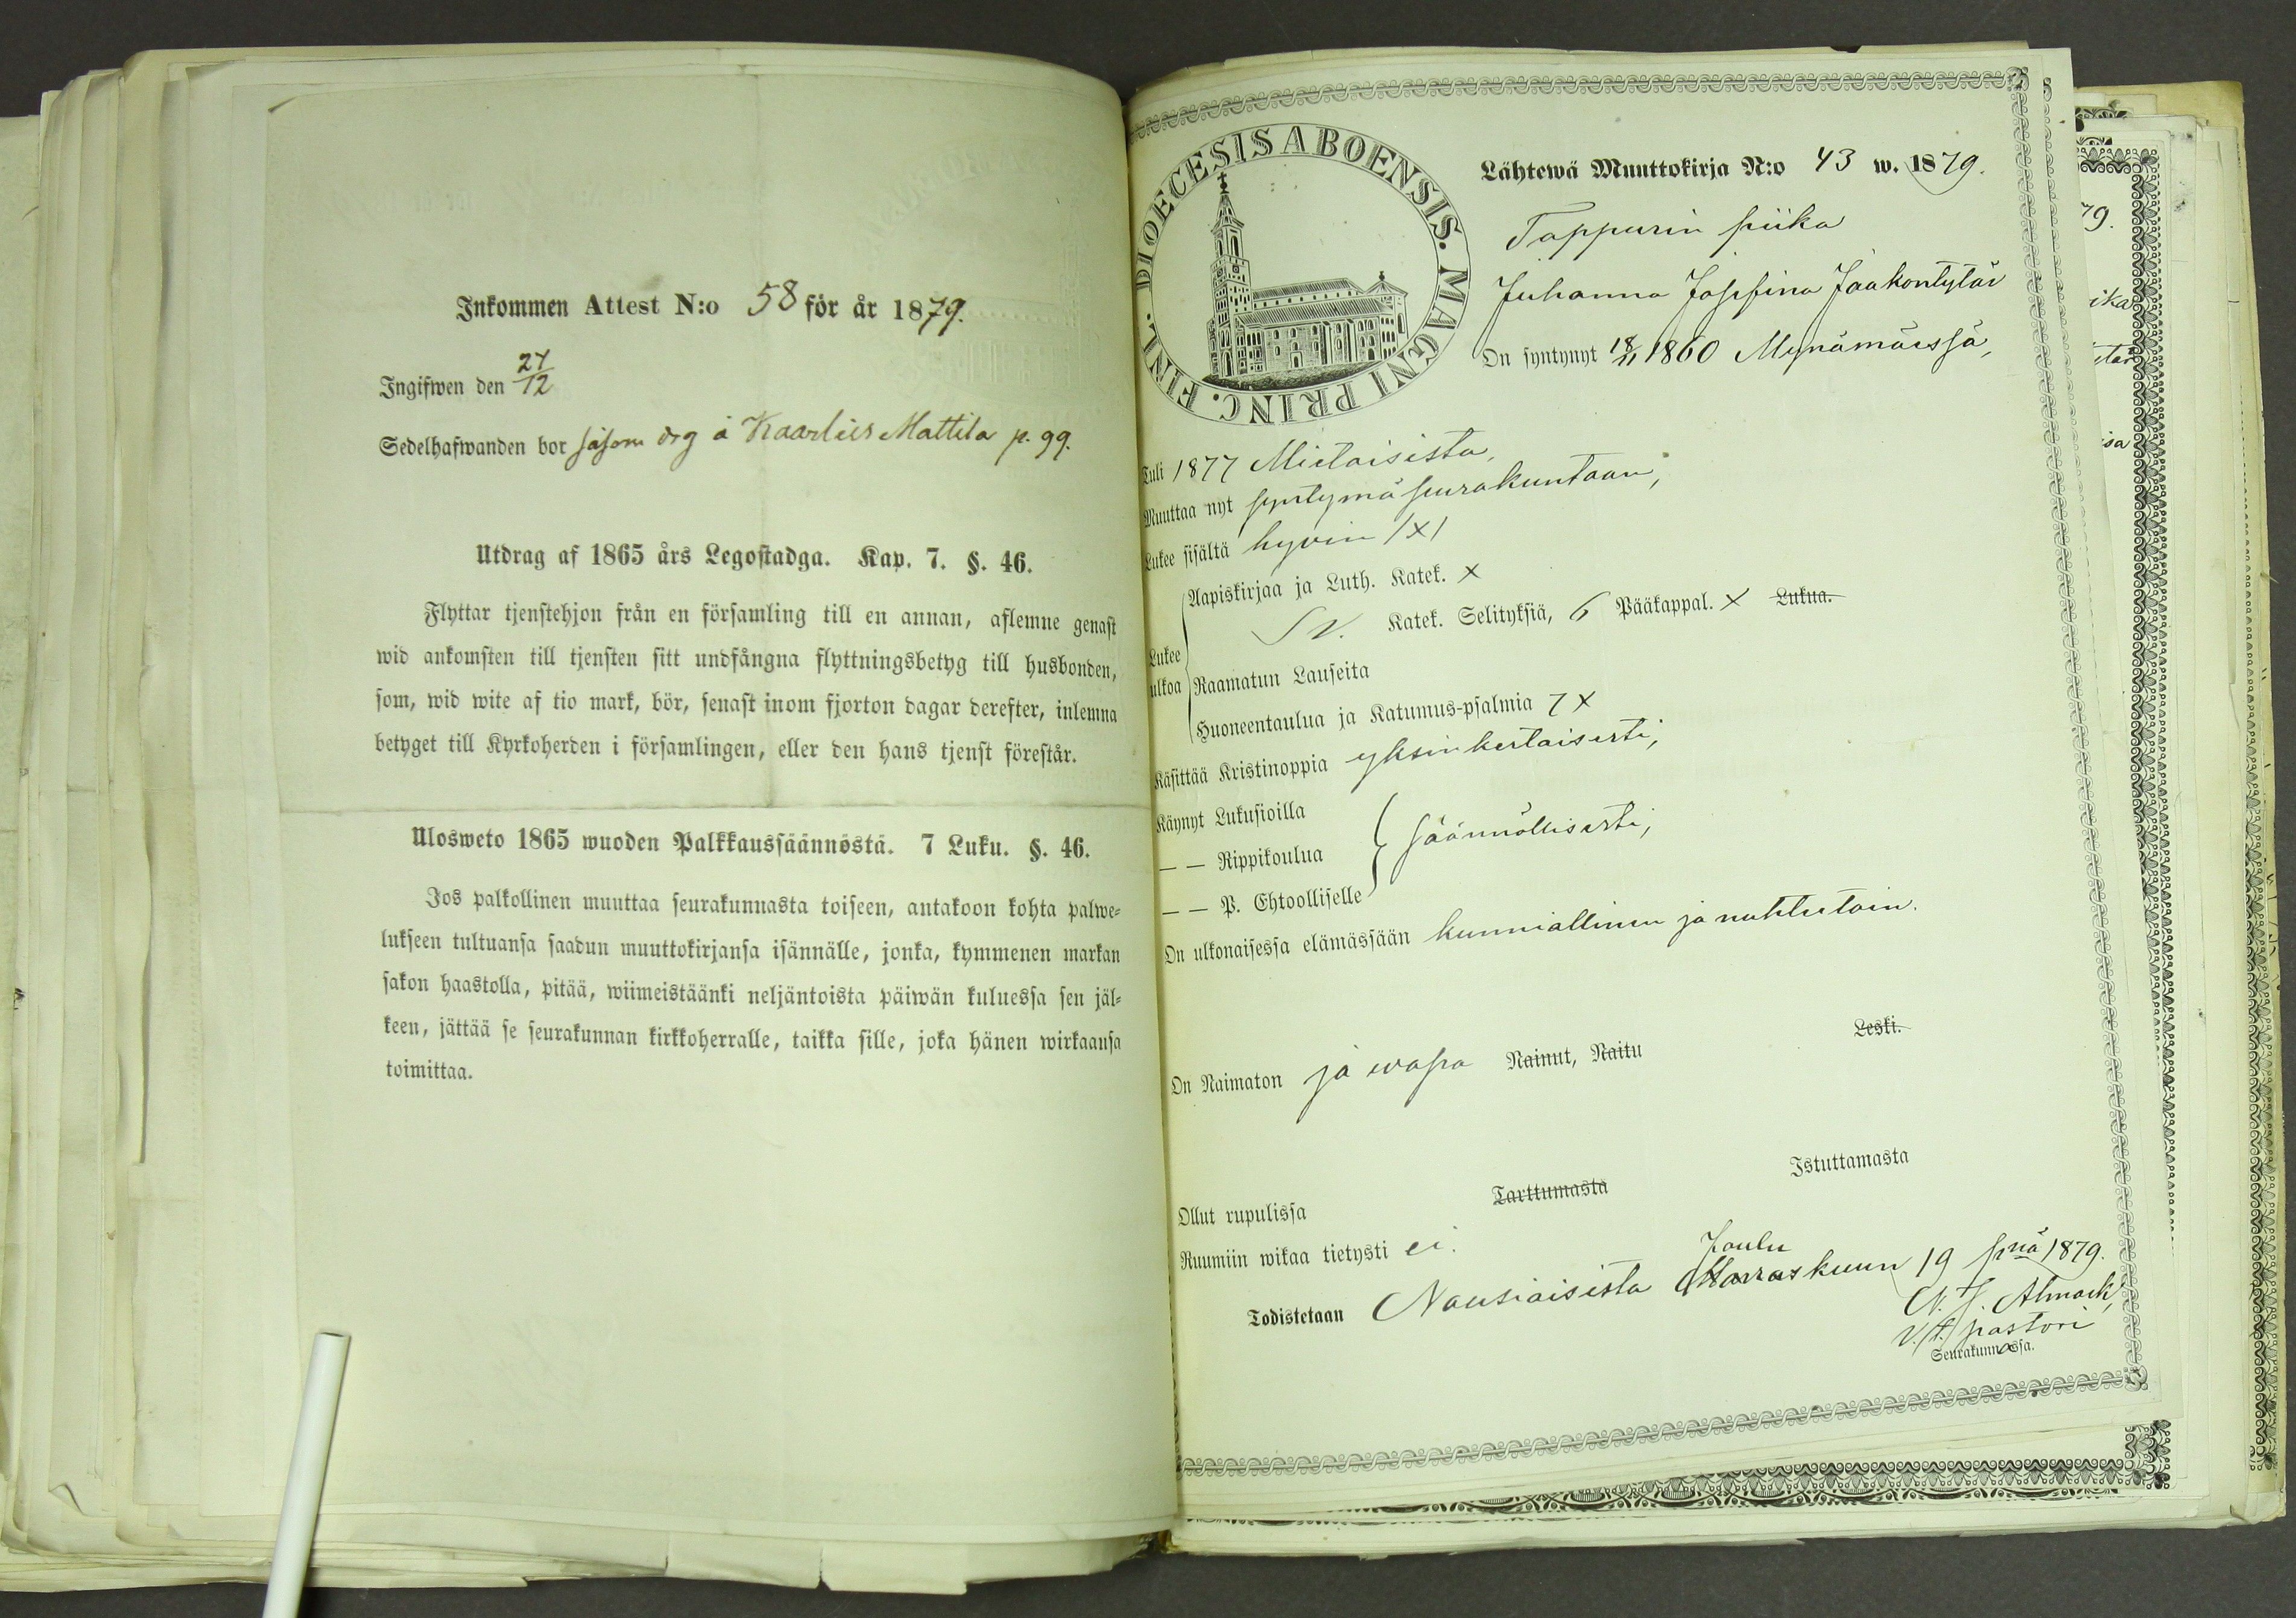 Inkommen Attest N:o 58 för år 1879.
Ingifwen den 27/12
Sedelhafwanden bor såsom drg å Kaarlies Mattila p. 99.
Utdrag af 1865 års Legostadga. Kap. 7. §. 46.
Flyttar tjenstehjon från en församling till en annan, aflemne genast
wid ankomsten till tjensten sitt undfångna flyttningsbetyg till husbonden,
som, wid wite af tio mark, bör, senast inom fjorton dagar derefter, inlemna
betyget till Kyrkoherden i församlingen, eller den hans tjenst förestår.
Ulosweto 1865 wuoden Palkkaussäännöstä. 7 Luku. §. 46.
Jos palkollinen muuttaa seurakunnasta toiseen, antakoon kohta palwe-
lukseen tultuansa saadun muuttokirjansa isännälle, jonka, kymmenen markan
sakon haastolla, pitää, wiimeistäänki neljäntoista päiwän kuluessa sen jäl-
keen, jättää se seurakunnan kirkkoherralle, taikka sille, joka hänen wirkaansa
toimittaa.
FINL. DIOECESIS ABOENSIS. MAGNI PRINC.
Lähtewä Muuttokirja N:o 43 w. 1879.
Tappurin piika
Juhanna Josefina Jaakontytär
On syntynyt 18/11 1860 Mynämäessä,
Tuli 1877 Mietoisista,
Muuttaa nyt syntymäseurakuntaan,
Lukee sisältä hyvin /X/
Lukee ulkoa
Aapiskirjaa ja Luth. Katek. X
Sv. Katek. Selityksiä, 6 Pääkappal. X Lukua.
Raamatun Lauseita
Huoneentaulua ja Katumus-psalmia 7 X
Käsittää Kristinoppia yksinkertaisesti,
Käynyt Lukusioilla
— — Rippikoulua säännöllisesti,
— — P. Ehtoolliselle
On ulkonaisessa elämässään kunniallinen ja nuhteetoin.
On Naimaton ja wapa Nainut, Naitu Leski.
Ollut rupulissa Tarttumasta Istuttamasta
Ruumiin wikaa tietysti ei.
Joulu
Todistetaan Nousiaisista Marraskuun 19 pnä 1879.
v.t. pastori
Seurakunnassa.
79.
ika
tär
isa